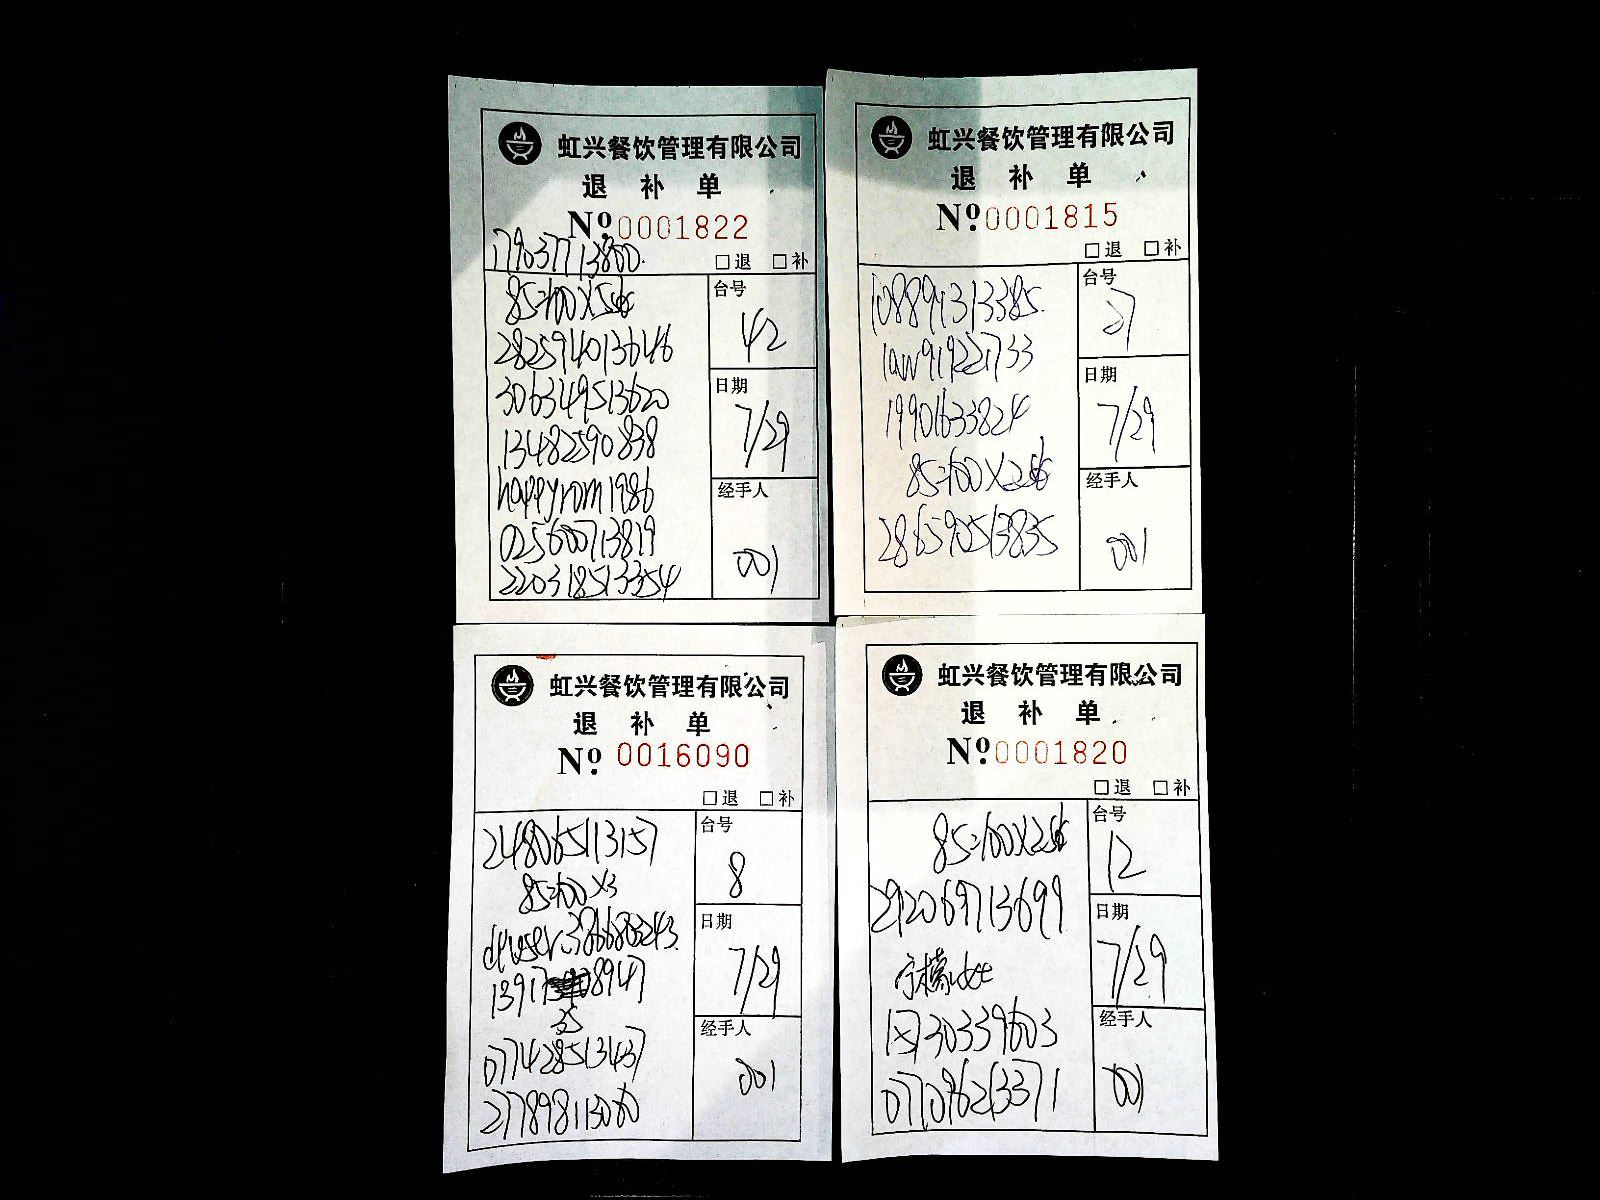 虹兴餐饮管理有限公司
退 补 单
No.0001822
179037713800.
□退 □补
85=100X5
282594013646
3063499513620
13482590838
happyrom1986
025600713819
220318513354
台号
42
日期
7/29
经手人
001
虹兴餐饮管理有限公司
退 补 单
No.0001815
□退 □补
1088991313385.
19901633824
85=100X2
2865902513835
台号
27
日期
7/29
经手人
001
虹兴餐饮管理有限公司
退 补 单
No. 0016090
□退 □补
248065113157
85=100X3
35
077428513437
台号
8
日期
7/29
经手人
001
虹兴餐饮管理有限公司
退 补 单
No.0001820
□退 □补
85=100X2
292069713699
077096213371
台号
12
日期
7/29
经手人
001